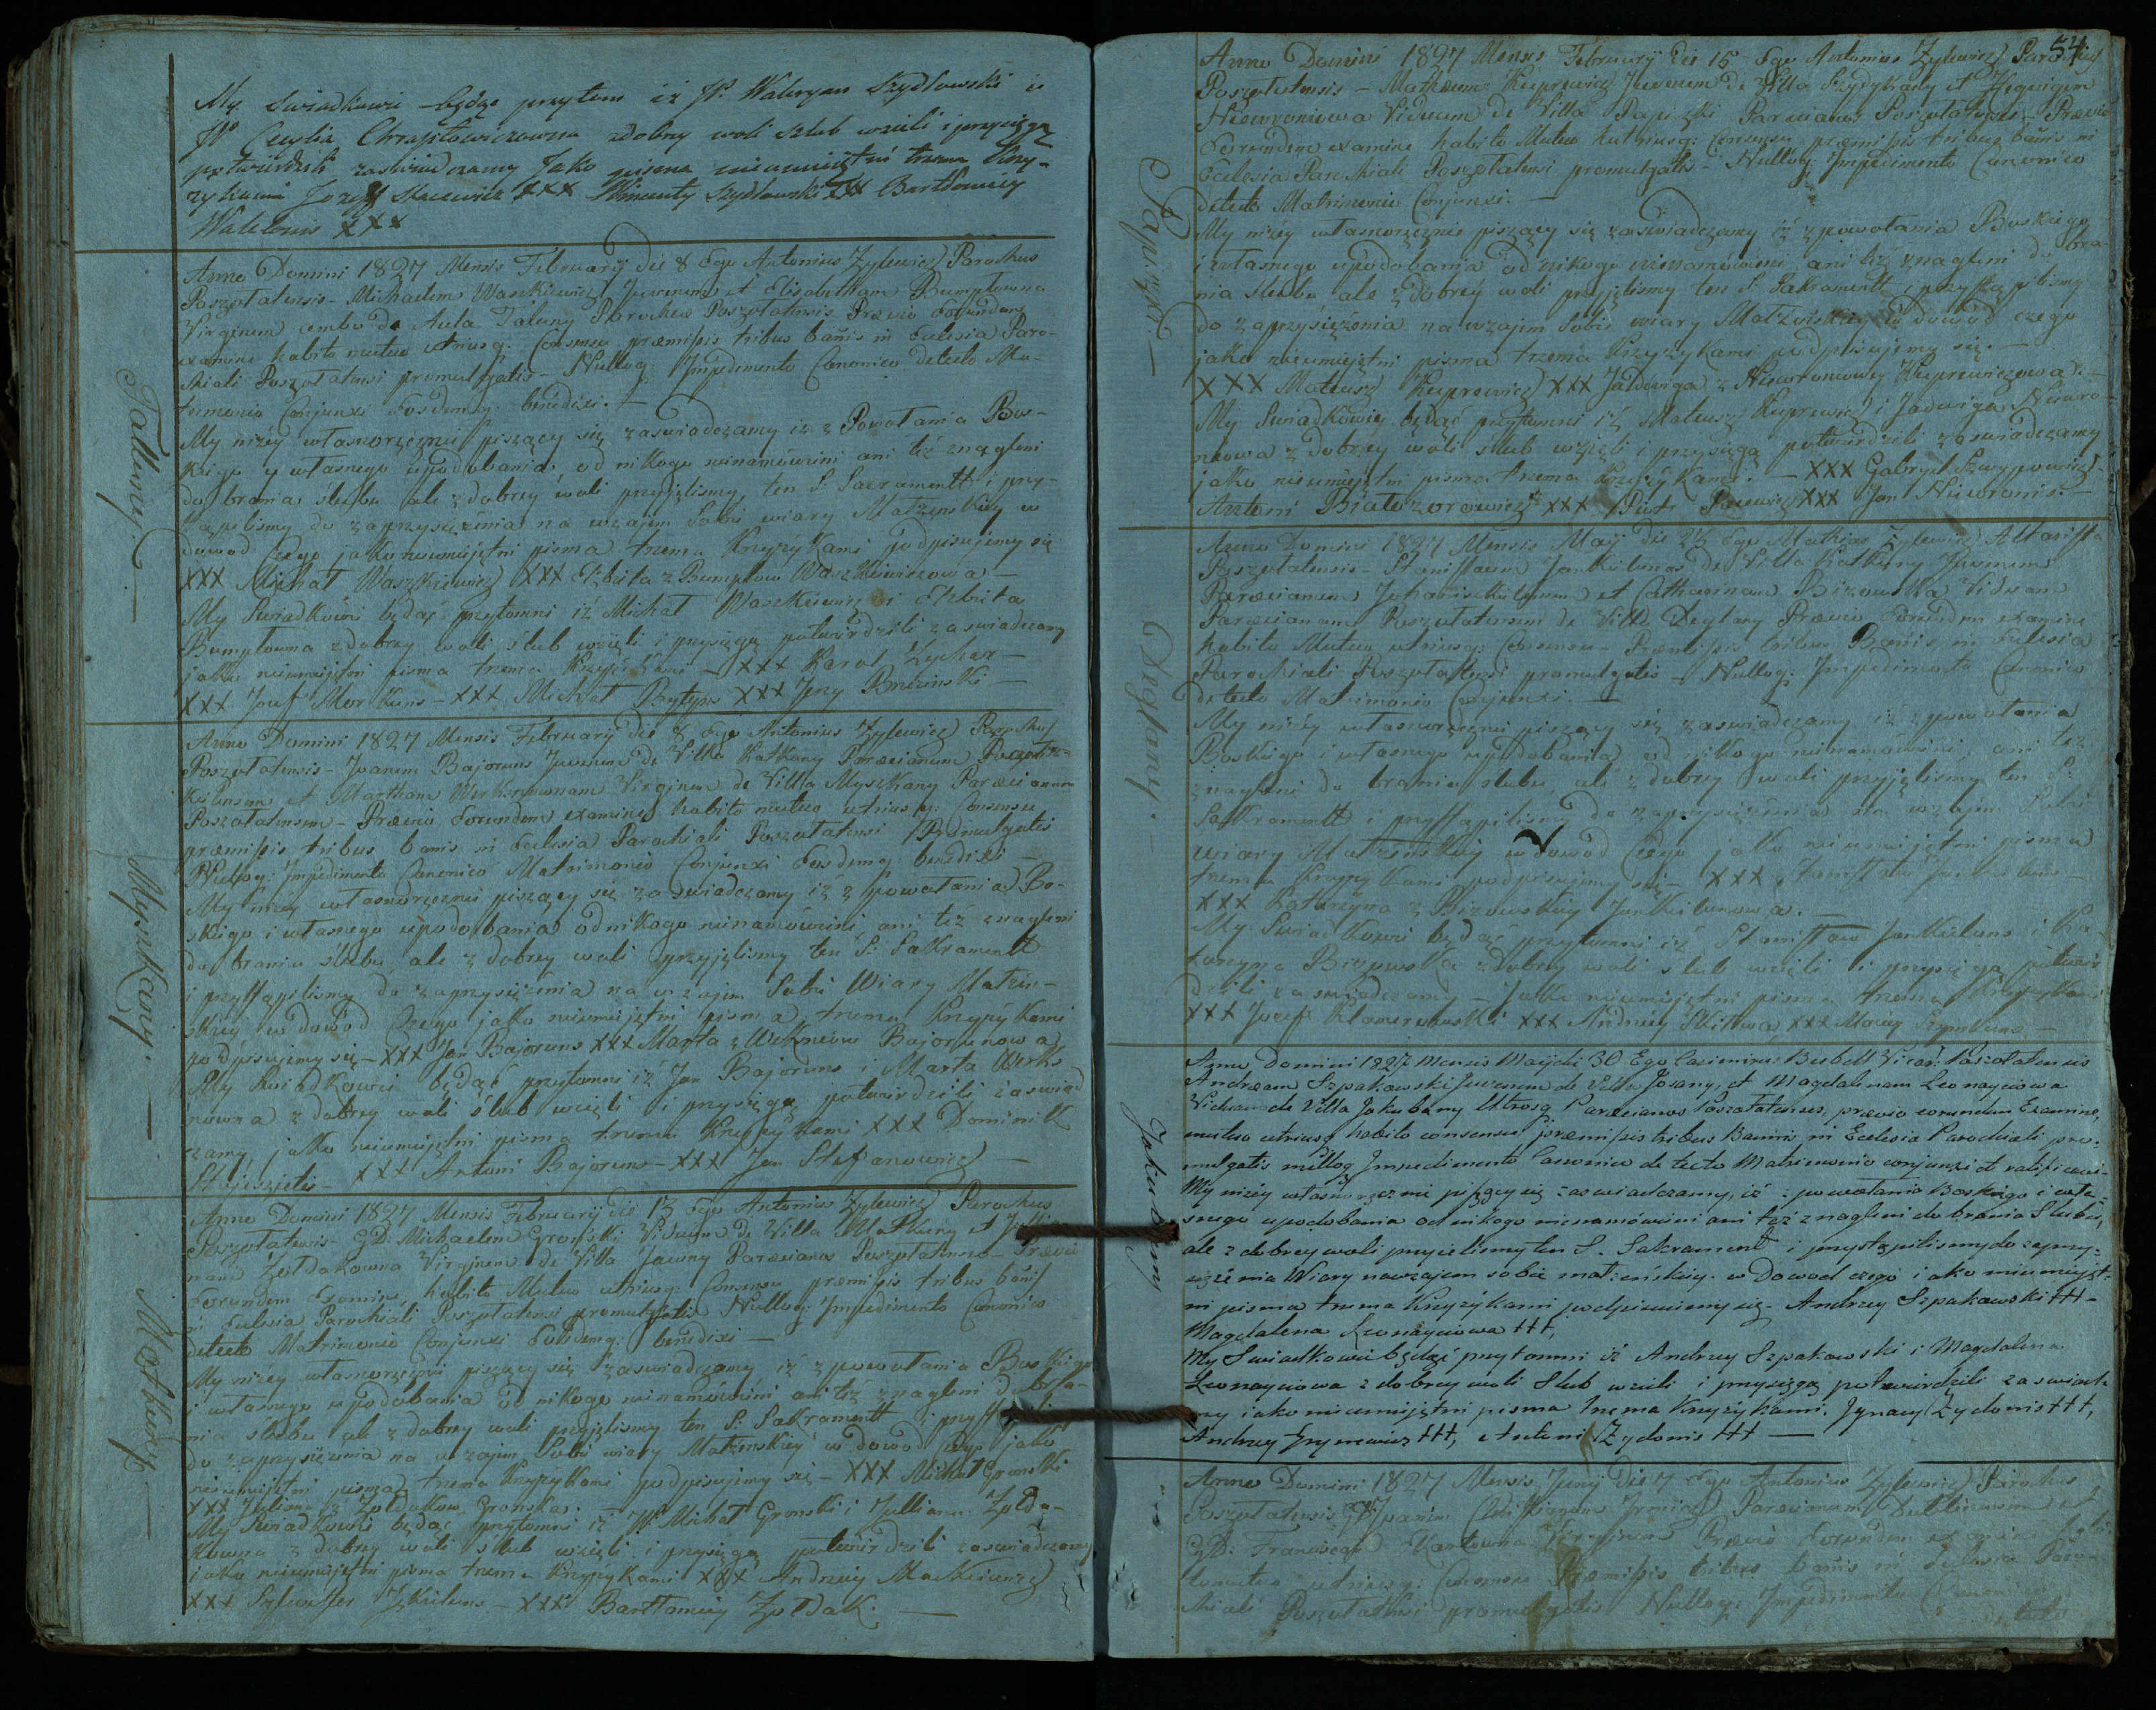 My Swiadkowie będąc przytom iż JP. Waleryan Szydłowski i
JP Cecylia Chrapłowiczowna zdobrey woli szlub wzieli i przysięgą
potwierdzili zaswiadczamy Jako pisma nieumieiętni trzema Krzy-
zykami Jozeff XXX Wincenty Szydłowski XXX Bartłomiey
XXX
Anno Domini 1827 Mensis Februarij die 8 Ego Antonius Zylewicz Parochus
Poszołatensis - Michaelem Waszkiewicz Juvenem et Elisabetham Bumplowna
Virginem ambo de Aula Taluny Parochiae Poszołatensis Prævio Eorundem
examine habito mutuo utriusq: Consensu præmißis tribus bañis in Ecclesia Paro-
chiali Poszołatensi promulgatis - Nulloq: Impedimento Canonico detecto Ma-
trimonio Conjunxi Eosdemq: benedixi. —
My niżey własnoręcznie piszący się zaswiadczamy iż z Powołania Bos-
kiego y własnego upodobania, od nikogo nienamówieni ani też znagleni
do brania ślubu ale z dobrey woli przyjęlismy ten S. Sacramentt i przy-
stąpilismy do zaprzysiężenia na wzajem Sobie wiary Małżenskiey w
dowod czego jako nieumiejętni pisma trzema Krzyżykami podpisujemy się
XXX Michał Waszkiewicz XXX Elżbieta z Bumplow Waszkiewiczowa —
My Swiadkowie będąc przytomni iż Michał Waszkiewicz i Elżbieta
Bumplowna z dobrey woli ślub wzięli i przysięgą potwierdzili zaswiadczamy
jako nieumiejętni pisma trzema Krzyżykami — XXX Karol
XXX Jozef - XXX Michał XXX Jerzy —
Talluny. —
Anno Domini 1827 Mensis Februarij die 8 Ego Antonius Zylewicz Parochus
Poszołatensis - Joanem Bajoruns Juvenem de Villa Katkuny Paræcianum
et Martham Virginem de Villa Myszkany Paræcianam
Poszołatensem - Prævio Eorundem examine habito mutuo utriusq: Consensu
præmißis tribus banis in Ecclesia Parochiali Poszołatensi Promulgatis
Nulloq: Impedimento Canonico Matrimonio Conjunxi Eosdemq: benedixi —
My niżey własnoręcznie piszący się zaswiadczamy iż z powołania Bo-
skiego i własnego upodobania od nikogo nienamówieni, ani też znagleni
do brania ślubu ale z dobrey woli przyjęlismy ten S: Sakramentt
i przystąpilismy do zaprzysiężenia na wzajem Sobie Wiary Małżen-
skiey w dowód czego jako nieumiejętni pisma trzema Krzyżykami
podpisujemy się - XXX Jan Bajoruns XXX Marta z Bajorunowa
My Swiadkowie będąc przytomni iż Jan Bajoruns i Marta
nowna z dobrey woli ślub wzięli i przysięgą potwierdzili zaswiad
czamy, jako nieumiejętni pisma trzema Krzyżykami XXX Dominik
XXX Antoni Bajoruns - XXX Jan Stefanowicz —
Myszkany. —
Anno Domini 1827 Mensis Februarij die 13 Ego Antonius Zylewicz Parochus
Poszołatensis GD: Michaelem Gronski Viduum de Villa Matkuny et Jullia-
nam Zołdakowna Virginem de Villa Paræcianos Poszołatenses - Prævio
Eorundem Examine, habito Mutuo utriusq: Consensu præmißis tribus bañis
in Ecclesia Parochiali Poszołatensi promulgatis Nulloq: Impedimento Canonico
detecto Matrimonio Conjunxi Eosdemq: benedixi —
My niżey własnoręcznie piszący się zaswiadczamy iż z powołania Boskiego
i własnego upodobania od nikogo nienamówieni ani też znagleni do bra-
nia ślubu ale z dobrey woli przyjęlismy ten S: Sakramentt i przystąpilismy
do zaprzysiężenia na wzajem Sobie wiary Małżenskiey w dowod czego jako
nieumiejętni pisma trzema Krzyżykami podpisujemy się - XXX Michał Gronski
XXX Julianna z Zołdakow Gronska.
My Swiadkowie będąc przytomni iż JP. Michał Gronski i Julliana Zołda-
kowna z dobrey woli ślub wzięli i przysięgą potwierdzili zaswiadczamy
jako nieumiejętni pisma trzema Krzyżykami XXX Andrzey Mackiewicz
XXX Sylwester - XXX Bartłomiey Zołdak. —
Matkuny —
54
Anno Domini 1827 Mensis Februarij die 15 Ego Antonius Zylewicz Parochus
Poszołatensis - Matheum Kuprewicz Juvenem de Villa et Hegvigem
Niewroniowa Viduam de Villa Papiszki Parœcianos Poszołatenses - Prævio
Eorundem examine habito Mutuo utriusq: Consensu præmißis tribus bañis in
Ecclesia Parochiali Poszołatensi promulgatis - Nulloq: Impedimento Canonico
detecto Matrimonio Conjunxi. —
My niżey własnoręcznie piszący się zaświadczamy iż z powołania Boskiego
i własnego upodobania od nikogo nienamówieni, ani też znagleni do bra-
nia ślubu, ale z dobrey woli przyjęlismy ten S. Sakramentt i przystąpilismy
do zaprzysiężenia na wzajem Sobie wiary Małżenskiey w dowód czego
jako nieumiejętni pisma trzema Krzyżykami podpisujemy się. —
XXX Mateusz Kuprewicz XXX Jadwiga z Niewroniowey Kuprewiczowa. —
My Swiadkowie będąc przytomni iż Mateusz Kuprewicz i Jadwiga Niewro-
niowa z dobrey woli ślub wzięli i przysięgą potwierdzili zaswiadczamy
jako nieumiejętni pisma trzema Krzyżykami. — XXX Gabryel
Antoni Białozorowicz XXX Piotr XXX Jan Niewronis. —
Papiszki —
Anno Domini 1827 Mensis Maji die Ego Mathias Zylewicz Altarista
Poszołatensis - Stanisłaum Jankielunas de Villa Katkuny Juvenem
Paræcianum et Catharinam Bizowska Viduam
Paræcianam Poszołatensem de Villa Deglany Prævio Eorundem examine
habito Mutuo utriusq: Consensu - Præmißis tribus Banis in Ecclesia
Parochiali Poszołatensi promulgatis - Nulloq: Impedimento Canonico
detecto Matrimonio Conjunxi. —
My niżey własnoręcznie piszący się zaswiadczamy iż z powołania
Boskiego i własnego upodobania od nikogo nienamówieni, ani też
znagleni do brania ślubu, ale z dobrey woli przyjęlismy ten S:
Sakramentt i przystąpilismy do zaprzysiężenia na wzajem Sobie
wiary Małżenskiey w dowód czego jako nieumiejętni pisma
trzema Krzyżykami podpisujemy się - XXX Stanisław
XXX Katarzyna z Bizowskiey Jankielunowa. —
My Swiadkowie będąc przytomni iż Stanisław Jankieluns i Ka-
tarzyna Bizowska z dobrey woli ślub wzięli i przysięgą potwier
dzili zaswiadczamy - Jako nieumiejętni pisma trzema Krzyżykami
XXX Jozef XXX Andrzey XXX Maciey —
Deglany. —
Anno Domini 1827 Mensis Maij die 30 Ego Casimirus Poszołatensis
Andream Szpakowski Juvenem de Villa Josany, et Magdalenam Leonayciowa
Viduam de Villa Jakubany Utrosq Parœcianos Poszołatenses, prævio eorundem Examine,
mutuo utriusq habito consensu præmißis tribus Bannis in Ecclesia Parochiali pro-
mulgatis nulloq Impedimento Canonico detecto Matrimonio conjunxi et ratificavi -
My niżey własnoręcznie piszący się zaswiadczamy, iż z powołania Boskiego i wła-
snego upodobania od nikogo nienamówieni ani też znagleni do brania Slubu,
ale z dobrey woli przyielismy ten S. Sakrament i przystąpilismy do zaprzy-
siężenia Wiary nawzajem sobie małżeńskiey. w Dowod czego iako nieumieięt-
ni pisma trzema Krzyżykami podpisuiemy się - Andrzey Szpakowski +++ -
Magdalena Leonayciowa +++,
My Swiadkowie będąc przytomni iż Andrzey Szpakowski i Magdalena
Leonayciowa z dobrey woli Slub wzieli i przysięgą potwierdzili zaswiadcz-
my iako nieumiejętni pisma trzema Krzyżykami. Jgnacy Zydonis +++,
Andrzey +++, Antoni Zydonis +++ —
Jakubany
Anno Domini 1827 Mensis Junij die 7 Ego Antonius Zylewicz Parochus
Poszołatensis GD: Paræcianum et
GD: Franciscam Virginem Prævio Eorundem examine
mutuo utriusq: Consensu Præmißis tribus banis in Ecclesia Paro-
chiali Poszołatensi promulgatis Nulloq: Impedimento Canonico
detecto